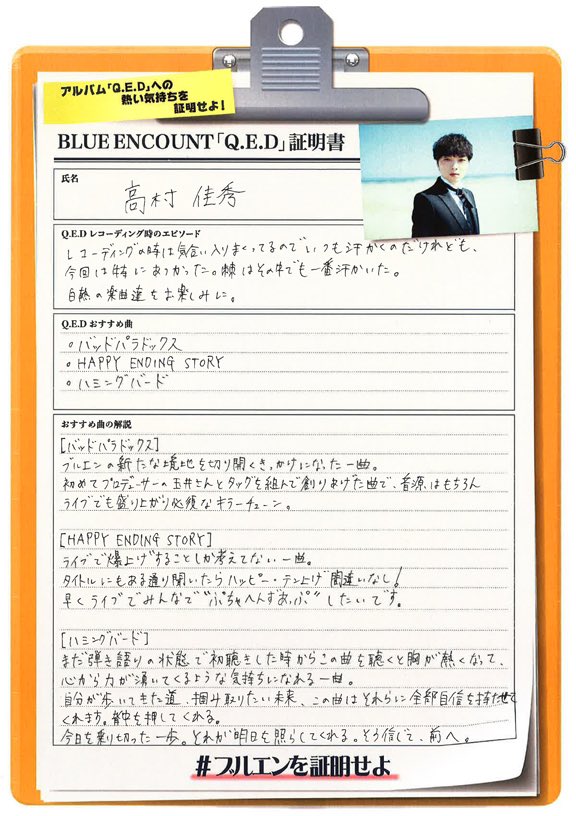 アルバム「Q.E.D」への
熱い気持ちを
証明せよ!
BLUE ENCOUNT「Q.E.D」証明書
氏名
高村 佳秀
Q.E.D レコーディング時のエピソード
レコーディングの時は気合い入りまくってるのでいつも汗かくのだけれども、
今回は特にあつかった。棘はその中でも一番汗かいた。
白熱の楽曲達をお楽しみに。
Q.E.D おすすめ曲
○バッドパラドックス
○HAPPY ENDING STORY
○ハミングバード
おすすめ曲の解説
[バッドパラドックス]
ブルエンの新たな境地を切り開くきっかけになった一曲。
初めてプロデューサーの玉井さんとタッグを組んで創りあげた曲で、音源はもちろん
ライブでも盛り上がり必須なキラーチューン。
[HAPPY ENDING STORY]
ライブで爆上げすることしか考えてない一曲。
タイトルにもある通り聞いたらハッピー・テン上げ間違いなし!
早くライブでみんなで"ぷちゃへんずあっぷ"したいです。
[ハミングバード]
まだ弾き語りの状態で初聴きした時からこの曲を聴くと胸が熱くなって、
心から力が湧いてくるような気持ちになれる一曲。
自分が歩いてきた道、掴み取りたい未来、この曲はそれらに全部自信を持たせて
くれます。背中を押してくれる。
今日を乗り切った一歩。それが明日を照らしてくれる。そう信じて、前へ。
#ブルエンを証明せよ